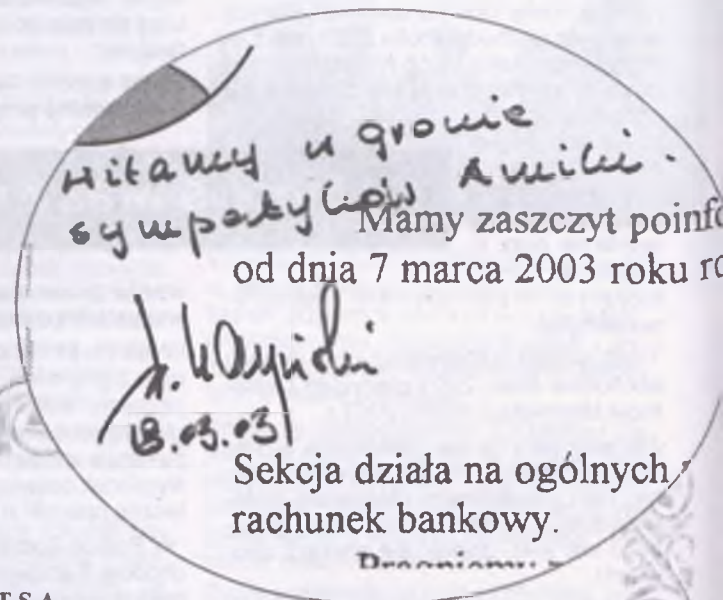 Witamy w gronie
sympatyków Amiki.
Mamy zaszczyt poinfo
od dnia 7 marca 2003 roku ro
18.03.03
Sekcja działa na ogólnych
rachunek bankowy.
Pragniemy
T S.A.